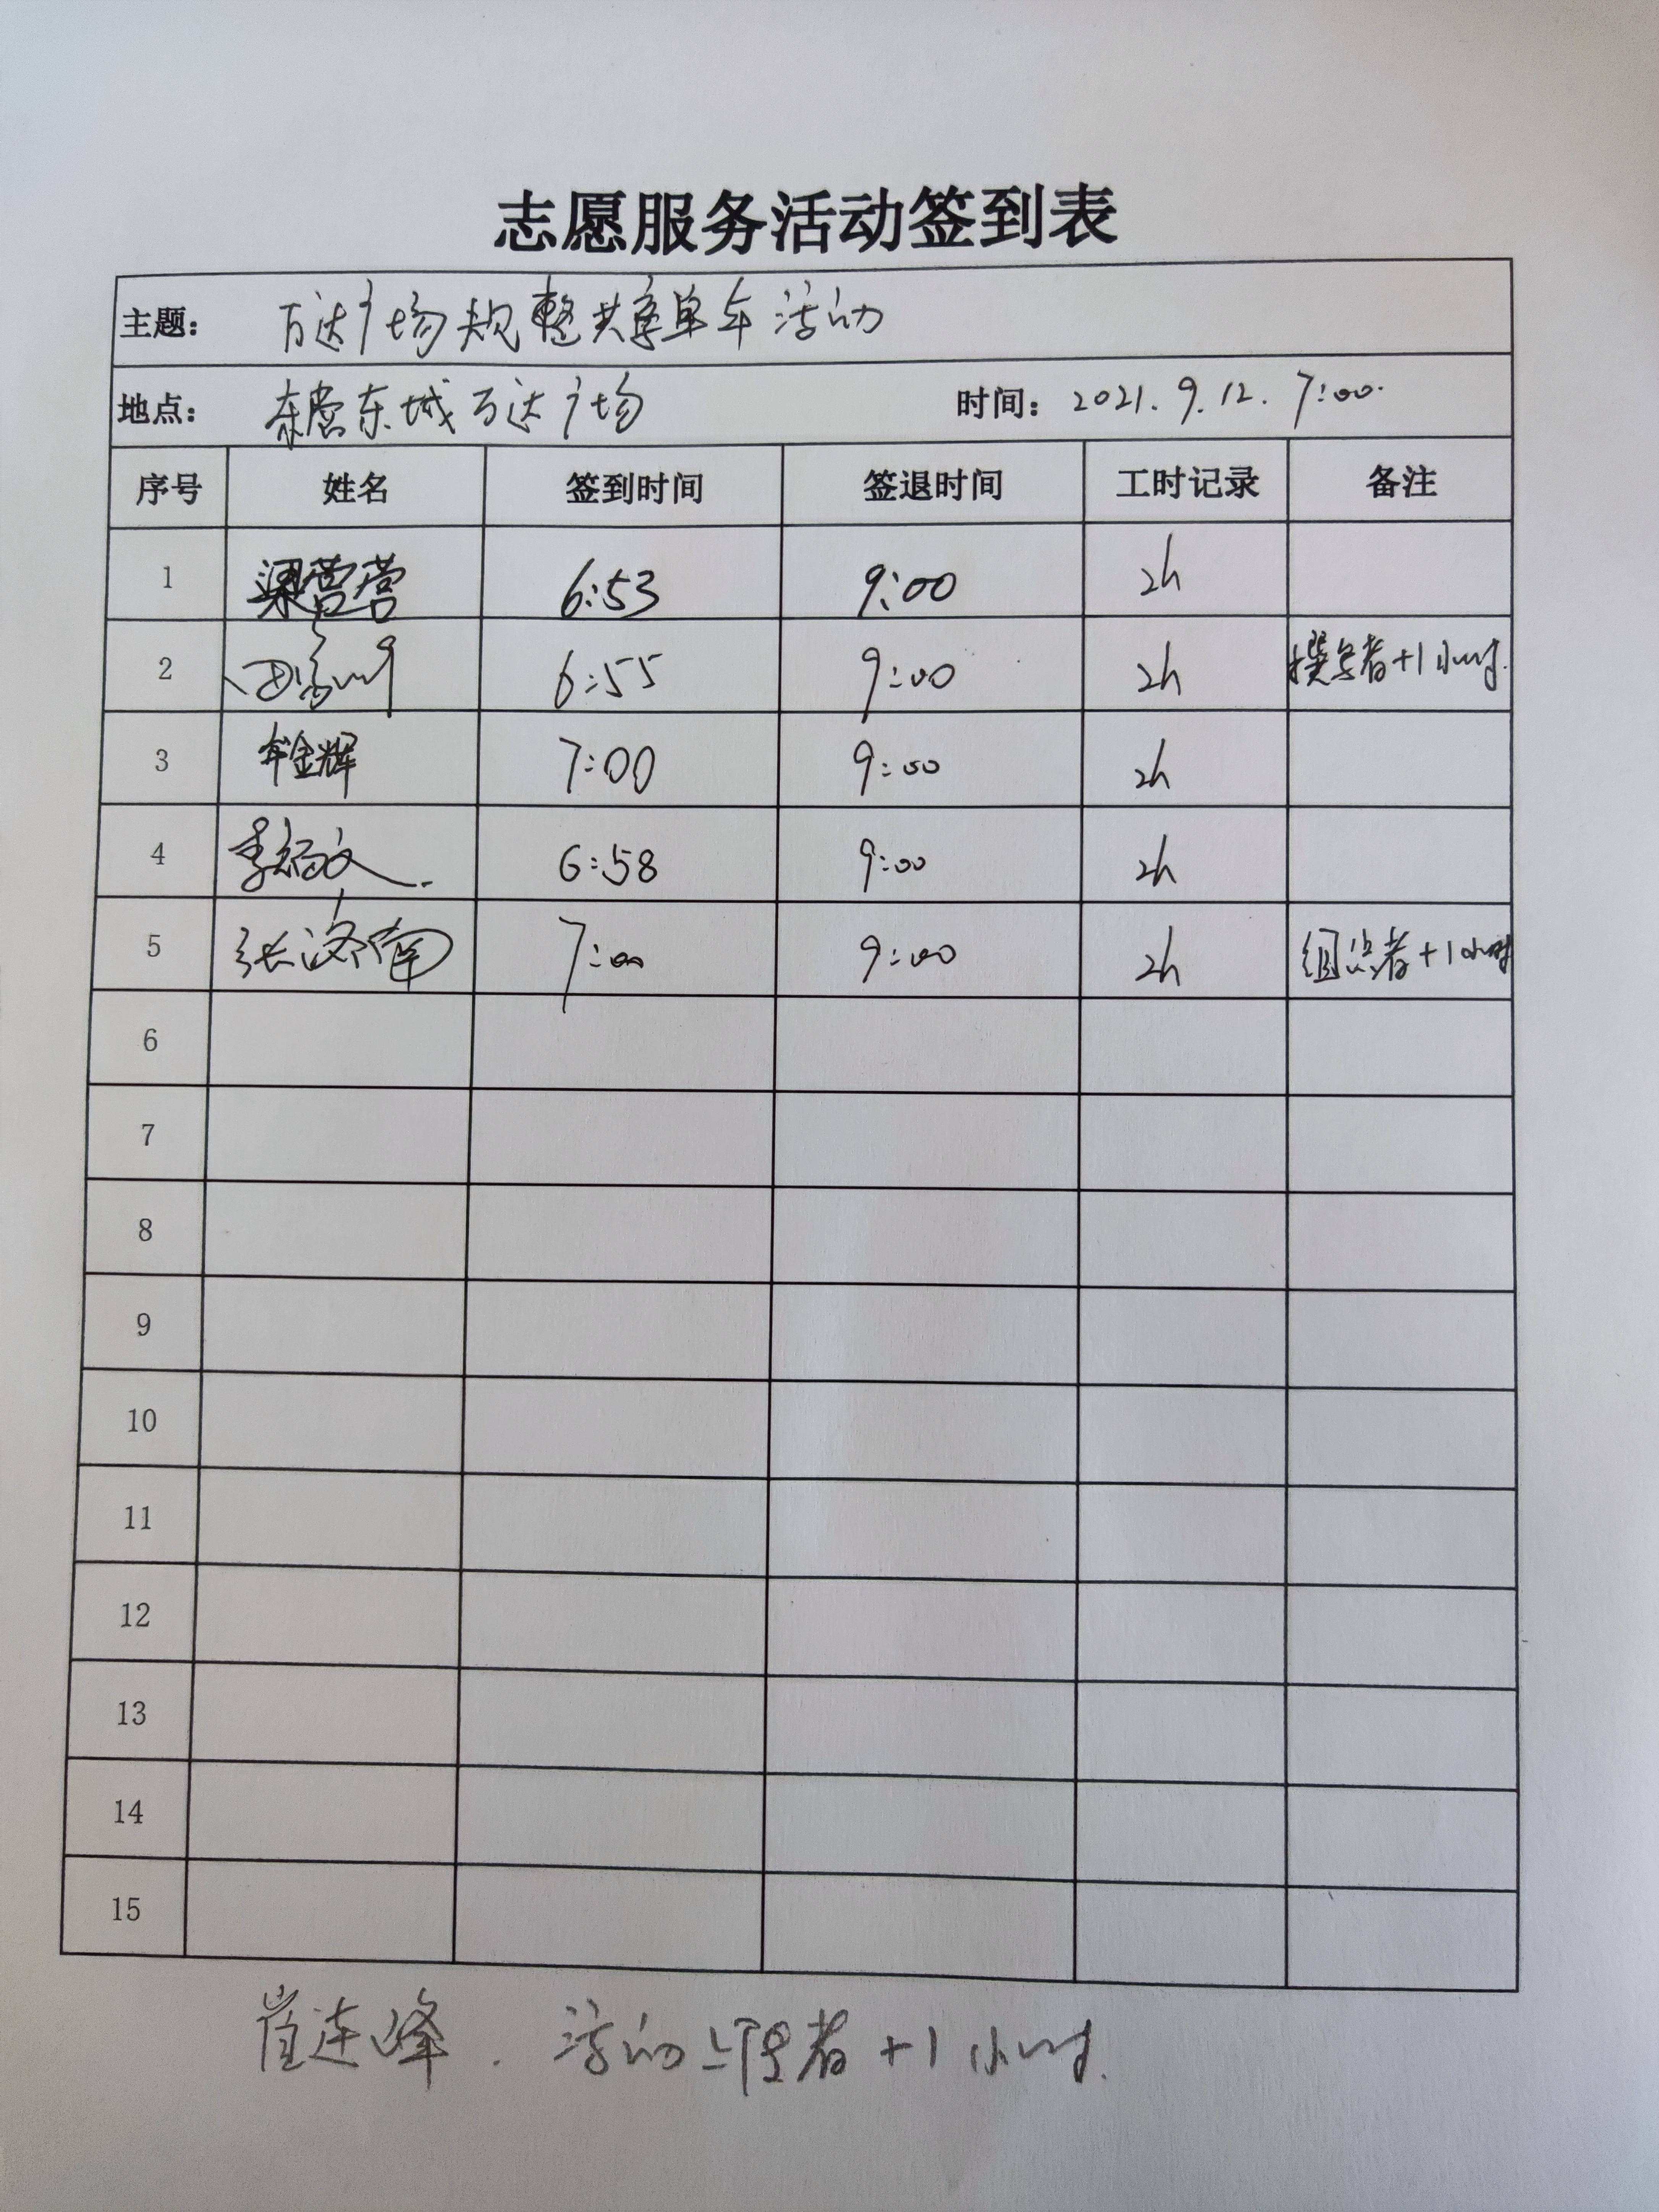 志愿服务活动签到表
主题: 万达广场规整共享单车活动
地点: 东营东城万达广场 时间: 2021.9.12. 7:00.
序号 姓名 签到时间 签退时间 工时记录 备注
1 梁营营 6:53 9:00 2h
2 6:55 9:00 2h 撰写者+1小时.
3 牟金辉 7:00 9:00 2h
4 李炳文 6:58 9:00 2h
5 张洛南 7:00 9:00 2h 组织者+1小时
6
7
8
9
10
11
12
13
14
15
崔连峰. 活动上传者+1小时.